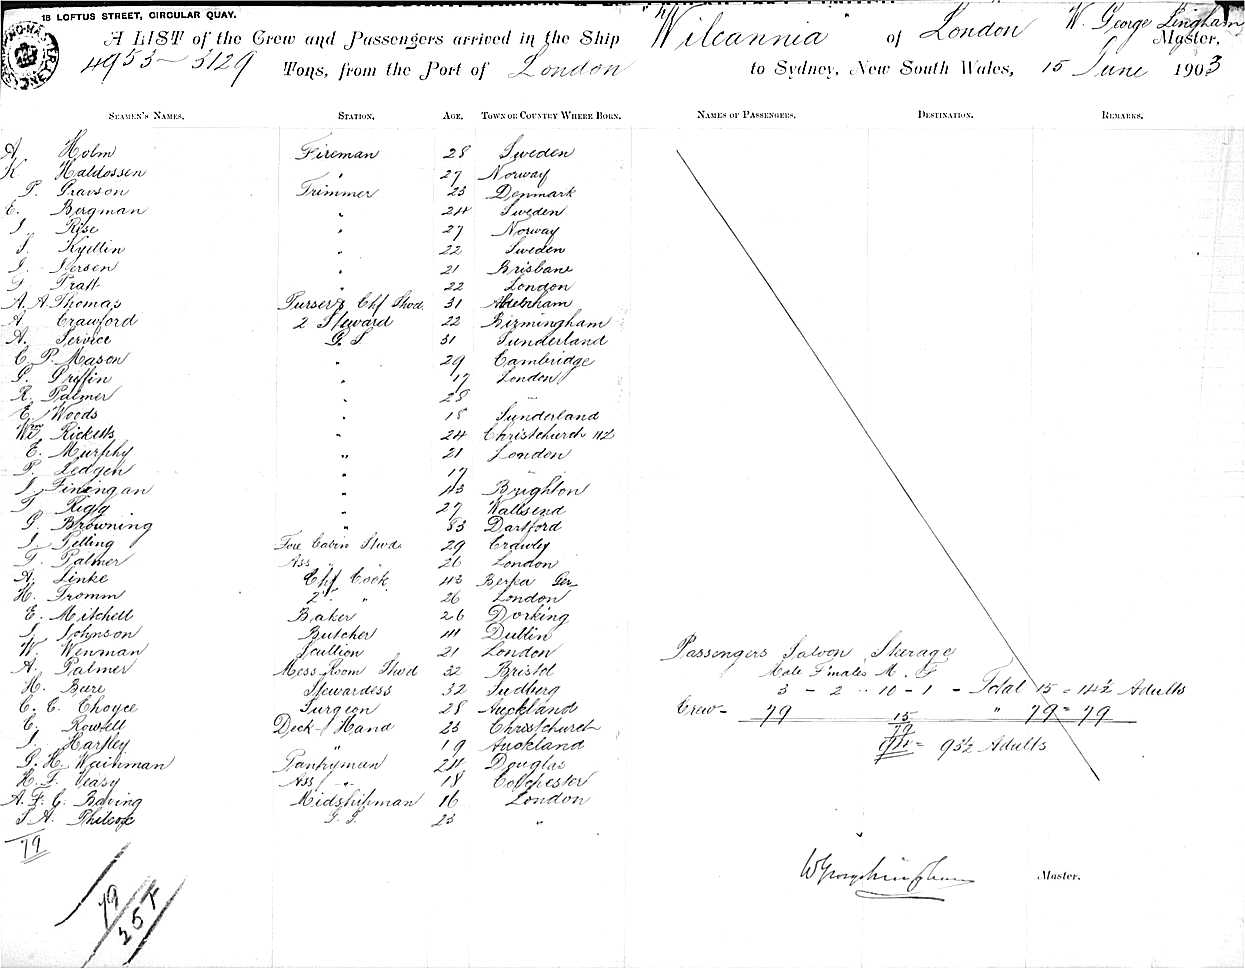 18 LOFTUS STREET, CIRCULAR QUAY.
A LIST of the Crew and Passengers arrived in the Ship "Wilcannia" of London W. George Lingham Master,
4953 - 3129 Tons, from the Port of London to Sydney, New South Wales, 15 June 1903
SEAMEN'S NAMES. STATION. AGE. TOWN OR COUNTRY WHERE BORN. NAMES OF PASSENGERS. DESTINATION. REMARKS.
A. Holm Fireman 28 Sweden
K Haldossen " 27 Norway
P. Gravson Trimmer 23 Denmark
E. Bergman " 24 Sweden
J Rise " 27 Norway
J. Kyellin " 22 Sweden
J. Iversen " 21 Brisbane
Pratt " 22 London
A. A Thomas Purser & Chf Stwd. 31
A Crawford 2 Steward 22 Birmingham
A. Service G. S 31 Sunderland
C. P. Mason " 29 Cambridge
G. Griffin " 17 London
R. Palmer " 28 "
E. Woods " 18 Sunderland
Wm Ricketts " 24 Christchurch NZ
E. Murphy " 21 London
P. Ledgen " 17 "
J Finingan " 43 Brighton
T Rigg " 27 Wallsend
G. Browning " 33 Dartford
J. Pelling Fore Cabin Stwd. 29 Crawley
T. Palmer Ass " " 26 London
A. Linke Chf Cook 43 Ger
H. Fromm 2 " " 26 London
E. Mitchell Baker 26 Dorking
J Johnson Butcher 41 Dublin
W. Wenman Scullion 21 London
A. Palmer Mess Room Stwd 32 Bristol
H. Bure Stewardess 32 Sudbury
C. E. Choyce Surgeon 28 Auckland
E. Rowell Deck Hand 23 Christchurch
J. Hartley " 19 Auckland
G. H. Wainman Pantryman 24 Douglas
H. F. Veasy Ass " 18 Colchester
A. F. C. Baring Midshipman 16 London
J A. Philcox G. S. 23 "
79
79
25 F
Passengers Saloon Steerage
Male Females M. F
3 - 2 " 10 - 1 - Total 15 = 14½ Adults
Crew - 79 15 " 79 = 79
79
94 = 93½ Adults
W George Lingham Master.